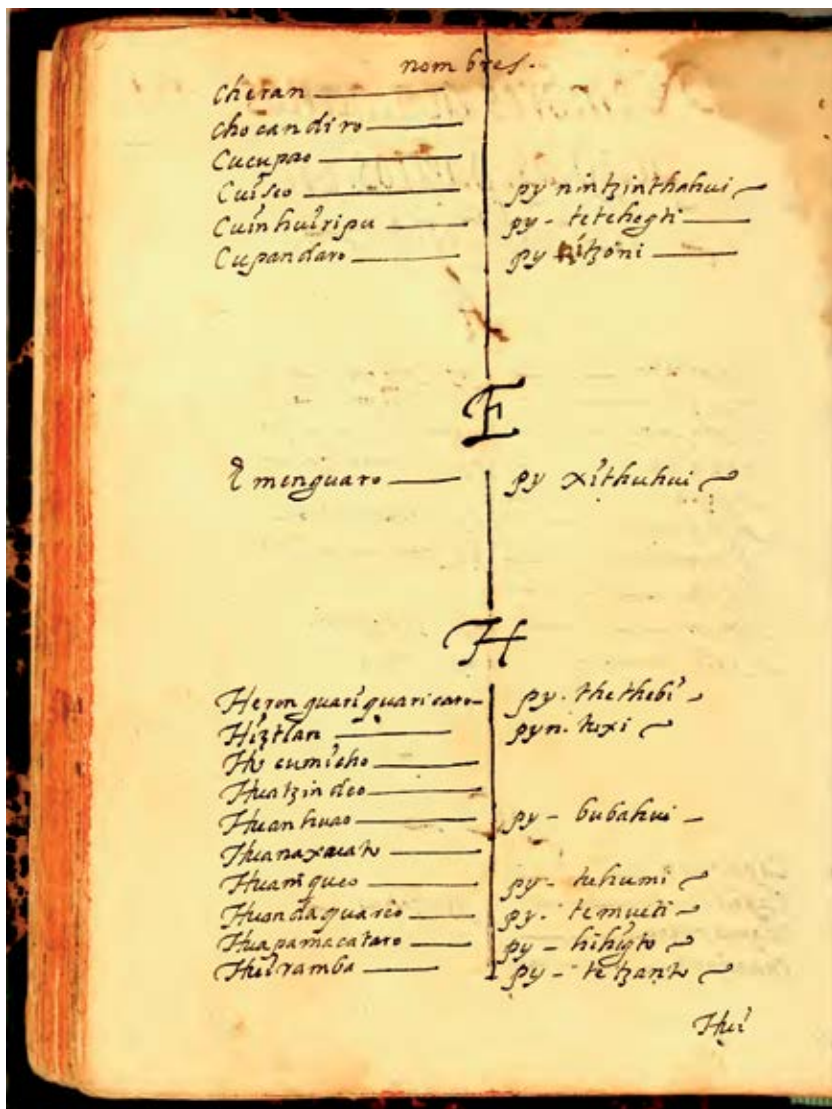 nombres.
Cheran
Chocandiro
Cucupao
Cuiseo py nintzinthahui
Cuinhuiripu py - tetehegti
Cupandaro py nitzoni
E
Emenguaro py xithuhui
H
Heronguariquaricaro py. thethebi
Hiztlan pyn. tuxi
Hucumicho
Huatzindeo
Huanhuao py - bubahui
Huanaxuato
Huaniqueo py - tehumi
Huandaquareo py. temueti
Huapamacataro py - hihigto
Huiramba py - tetzanto
Hui